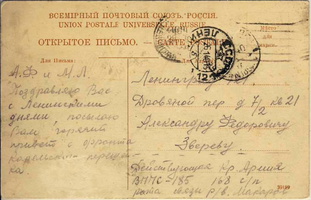 ВСЕМІРНЫЙ ПОЧТОВЫЙ СОЮЗЪ. РОССІЯ.
UNION POSTALE UNIVERSELLE. RUSSIE.
ОТКРЫТОЕ ПИСЬМО.
Для письма:
А.Ф и М.Л.
Поздравляю Вас
с Ленинскими
днями, посылаю
Вам горячий
привет с фронта
Ленинград
Дровяной пер д 7/2 кв 21
Александру Федоровичу
Звереву
Действующая Кр. Армия
168 с/п
рота связи Макаров